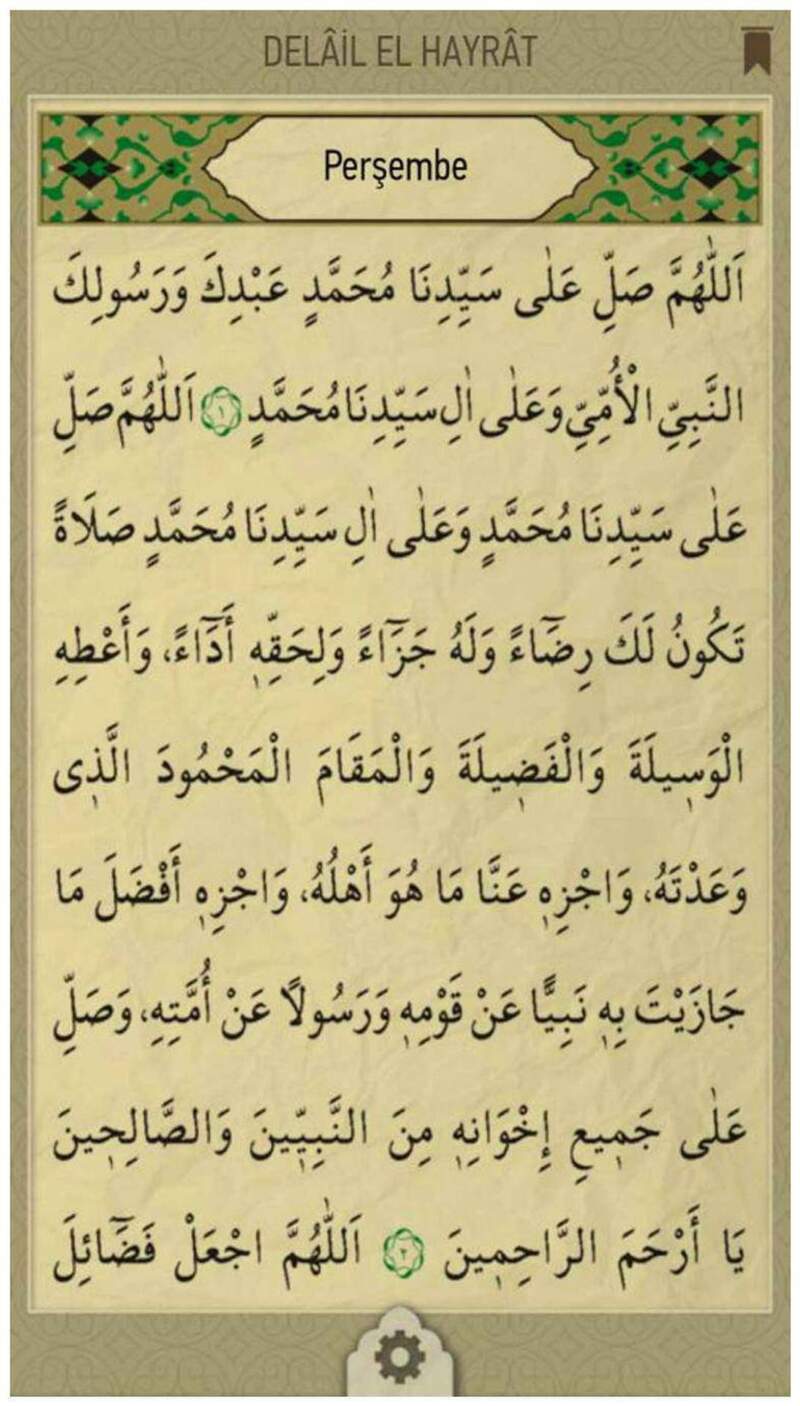 DELÂİL EL HAYRÂT
Perşembe
اَللّٰهُمَّ صَلِّ عَلٰى سَيِّدِنَا مُحَمَّدٍ عَبْدِكَ وَرَسُولِكَ
النَّبِيِّ الْأُمِّيِّ وَعَلٰى اٰلِ سَيِّدِنَا مُحَمَّدٍ ١ اَللّٰهُمَّ صَلِّ
عَلٰى سَيِّدِنَا مُحَمَّدٍ وَعَلٰى اٰلِ سَيِّدِنَا مُحَمَّدٍ صَلَاةً
تَكُونُ لَكَ رِضَٓاءً وَلَهُ جَزَٓاءً وَلِحَقِّهٖ أَدَٓاءً، وَأَعْطِهِ
الْوَسٖيلَةَ وَالْفَضٖيلَةَ وَالْمَقَامَ الْمَحْمُودَ الَّذٖى
وَعَدْتَهُ، وَاجْزِهٖ عَنَّا مَا هُوَ أَهْلُهُ، وَاجْزِهٖ أَفْضَلَ مَا
جَازَيْتَ بِهٖ نَبِيًّا عَنْ قَوْمِهٖ وَرَسُولاً عَنْ أُمَّتِهِ، وَصَلِّ
عَلٰى جَمٖيعِ إِخْوَانِهٖ مِنَ النَّبِيّٖينَ وَالصَّالِحٖينَ
يَا أَرْحَمَ الرَّاحِمٖينَ ٢ اَللّٰهُمَّ اجْعَلْ فَضَٓائِلَ